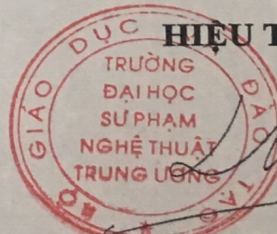 HIỆU T
BỘ GIÁO DỤC ĐÀO TẠO
TRƯỜNG
ĐẠI HỌC
SƯ PHẠM
NGHỆ THUẬT
TRUNG ƯƠNG